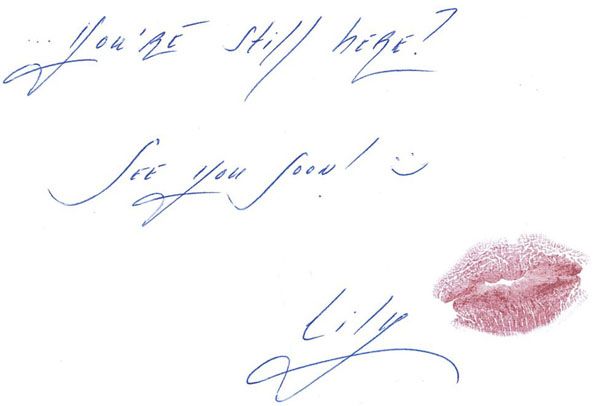 ...You're still here?
See you soon! :)
Lily